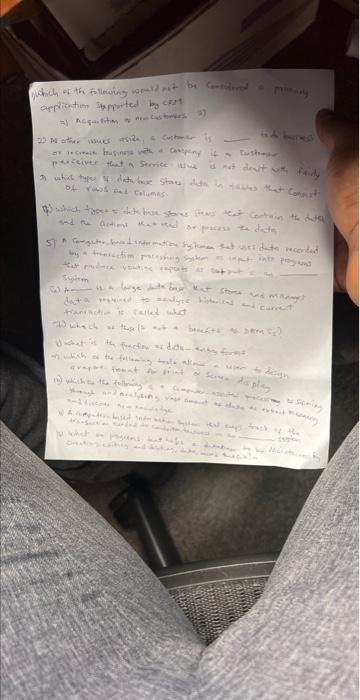 1) Which of the following would not be considered a primary
application supported by CRM
a) Acquisition of new customers
2) All other issues aside, a customer is ____ to do business
or increase business with a company if a customer
perceives that a service issue is not dealt with fairly
3) which types of data base stores data in tables that consist
of rows and columns.
4) which types of data base stores items that contain the data
and the actions that read or process the data
5) A computer based information systems that uses data recorded
by a transaction processing system as input into programs
that produce routine reports as output is an ____
System
6) A ____ is a large data base that stores and manages
data required to analyze historical and current
transaction is called what
7) which of these is not a benefits of DBMSs?
8) what is the function of data-entry forms
9) which of the following tools allows a user to design
a report format for print or screen display
10) which of the following is a computer-assisted process of sifting
through and analyzing vast amount of data to extract meaning
and discover new knowledge
A computer based information system that keeps track of the
transaction needed to conduct business is a ____ system
what programs that helps a database by
creating, editing and deleting data,